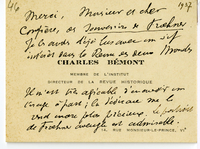 46
1937
Merci, Monsieur et cher
Confrère, des Souvenirs de
Je les avais déjà lus avec un vif
intérêt dans la Revue des deux Mondes
CHARLES BÉMONT
MEMBRE DE L'INSTITUT
DIRECTEUR DE LA REVUE HISTORIQUE
Il m'est très agréable d'en avoir un
tirage à part; la dédicace me le
rend encore plus précieux. Le portrait
de aveugle est admirable.
14, RUE MONSIEUR-LE-PRINCE, VI